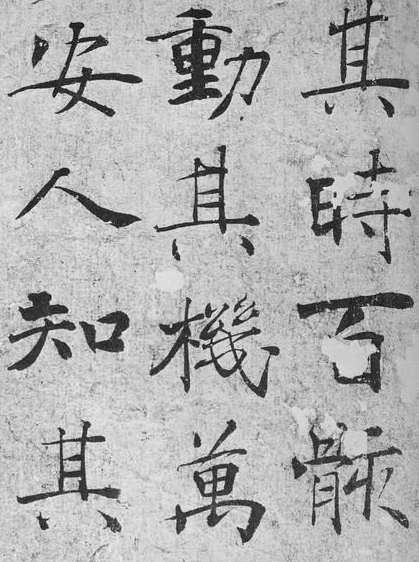 其時百骸
動其機萬
安人知其